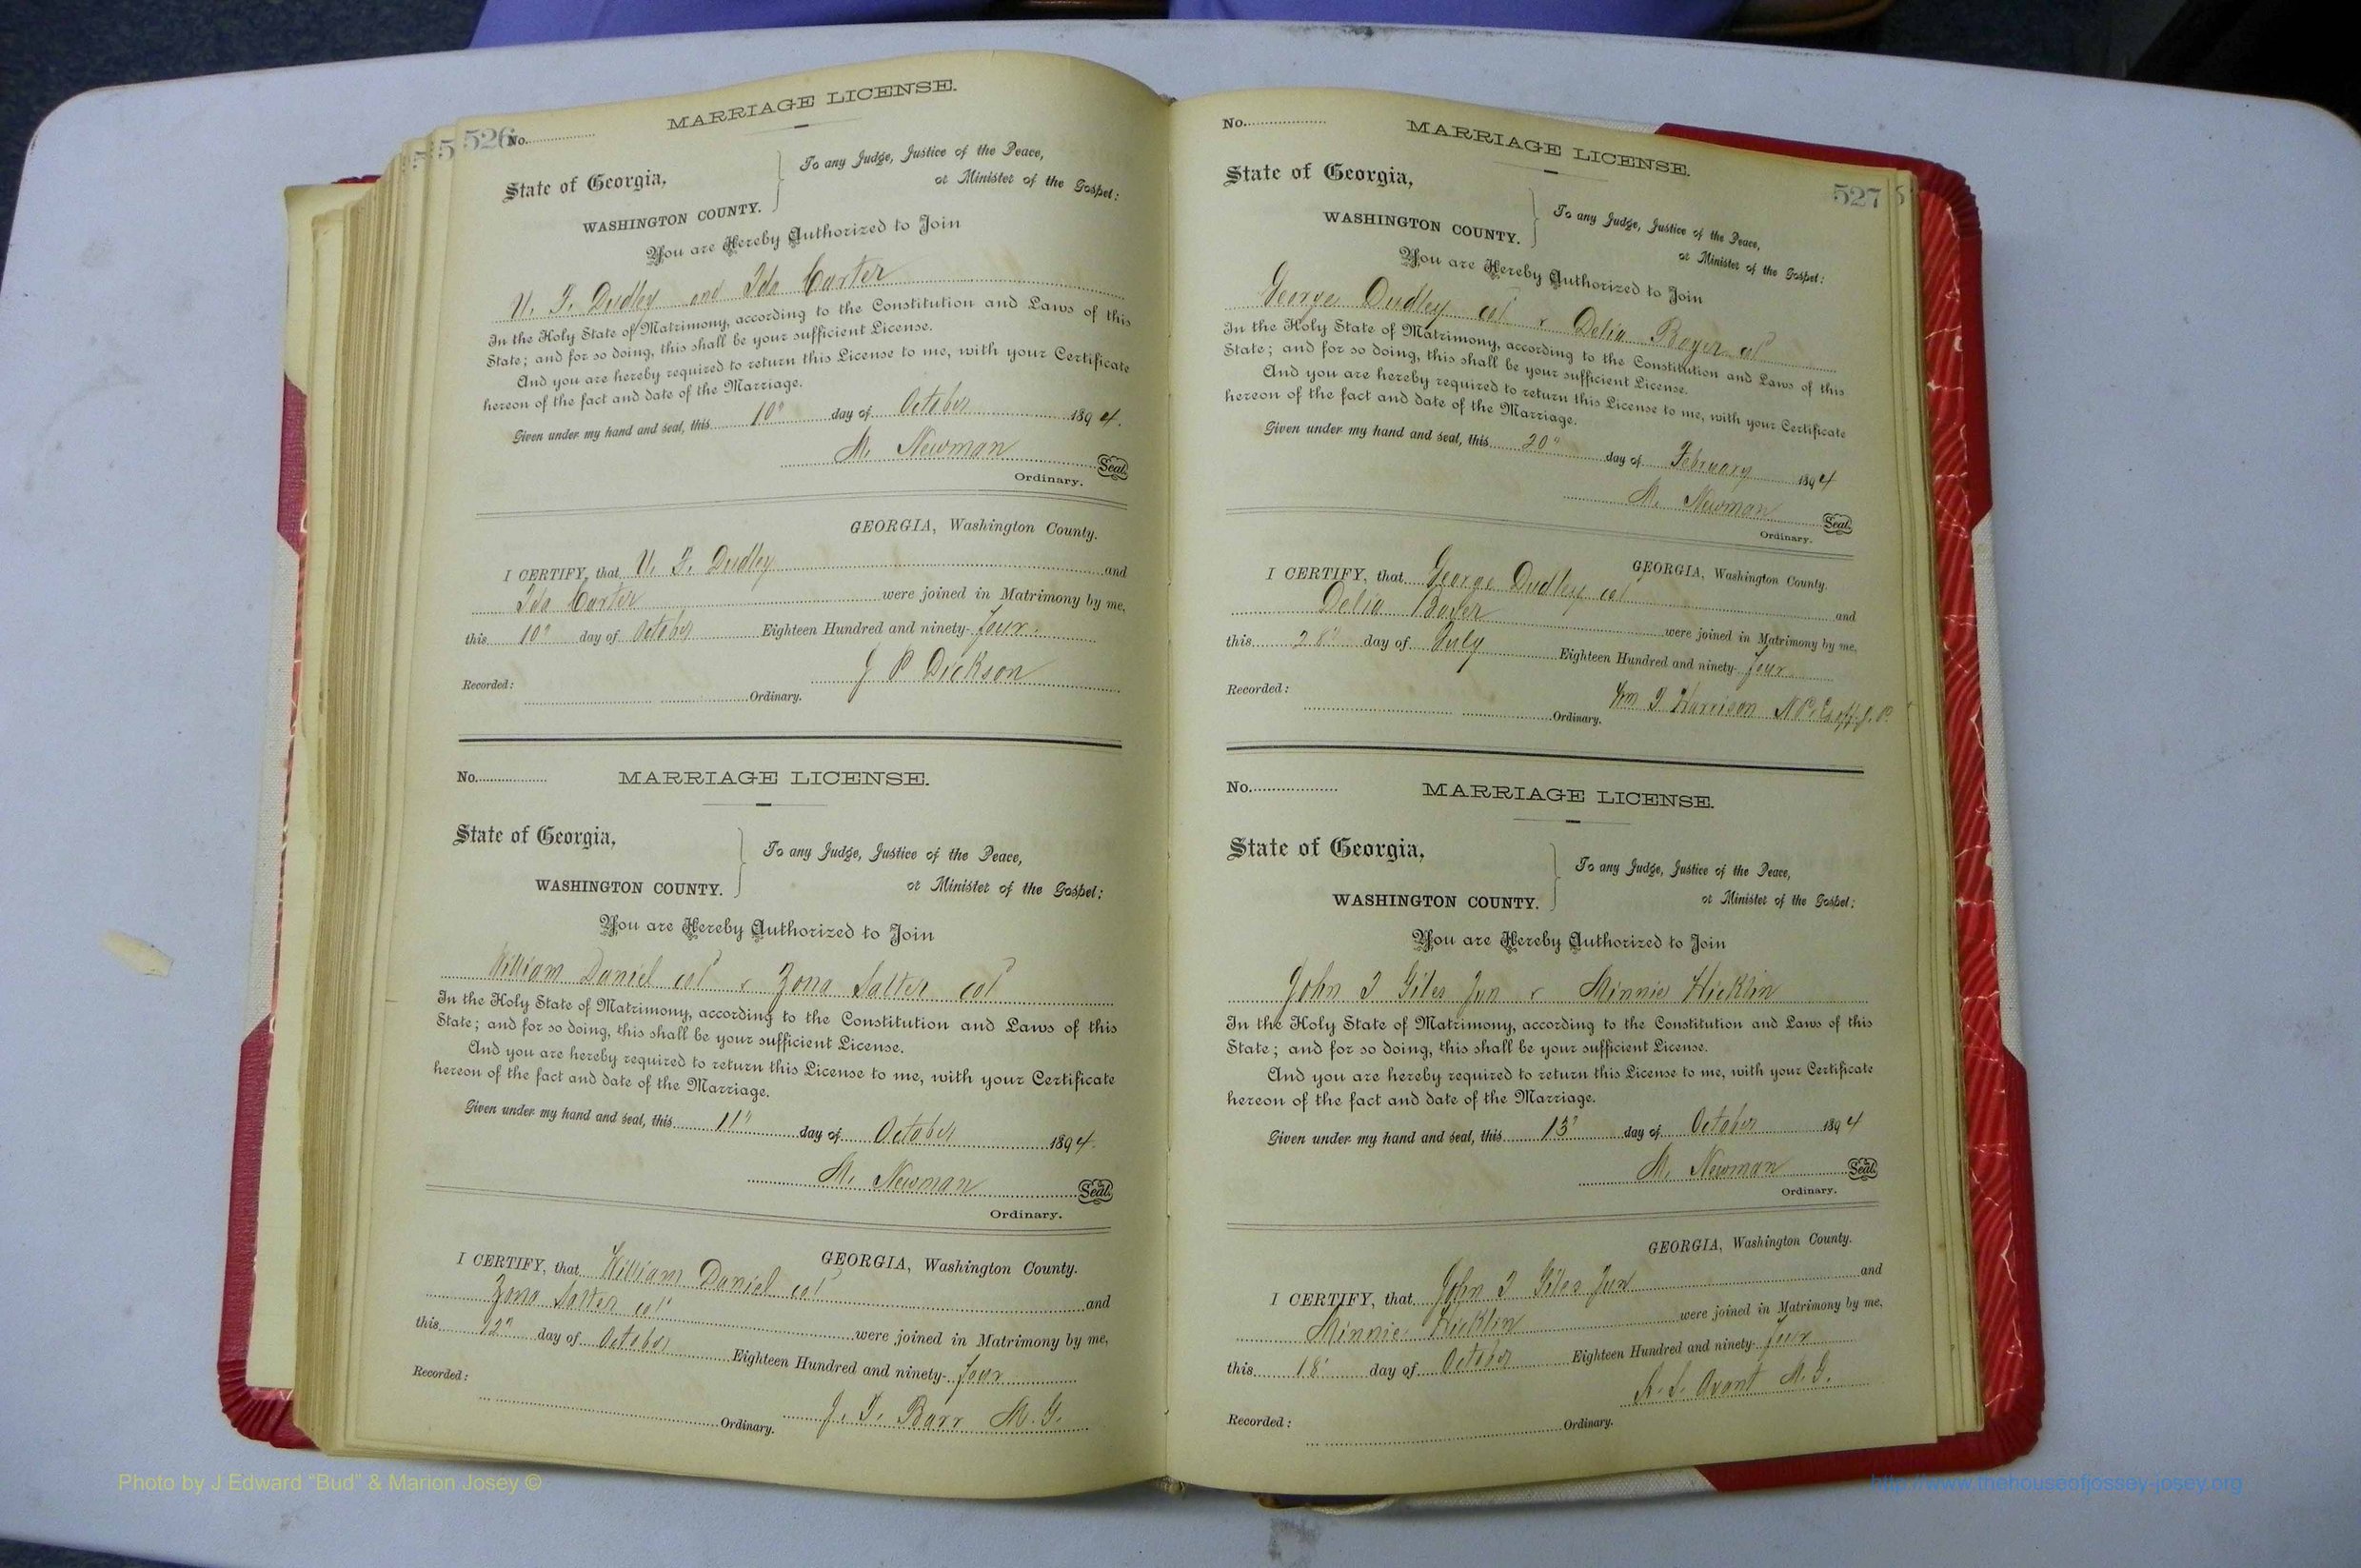 526
No.
MARRIAGE LICENSE.
State of Georgia,
WASHINGTON COUNTY.
To any Judge, Justice of the Peace,
or Minister of the Gospel:
You are Hereby Authorized to Join
Dudley and Ida Carter
In the Holy State of Matrimony, according to the Constitution and Laws of this
State; and for so doing, this shall be your sufficient License.
And you are hereby required to return this License to me, with your Certificate
hereon of the fact and date of the Marriage.
Given under my hand and seal, this 10" day of October 1894.
M. Newman
Seal.
Ordinary.
GEORGIA, Washington County.
I CERTIFY, that Dudley and
Ida Carter were joined in Matrimony by me,
this 10" day of October Eighteen Hundred and ninety-four.
J P Dickson
Recorded: Ordinary.
No.
MARRIAGE LICENSE.
State of Georgia,
WASHINGTON COUNTY.
To any Judge, Justice of the Peace,
or Minister of the Gospel:
You are Hereby Authorized to Join
William Daniel col & Zona Salter col
In the Holy State of Matrimony, according to the Constitution and Laws of this
State; and for so doing, this shall be your sufficient License.
And you are hereby required to return this License to me, with your Certificate
hereon of the fact and date of the Marriage.
Given under my hand and seal, this 11" day of October 1894.
M. Newman
Seal.
Ordinary.
GEORGIA, Washington County.
I CERTIFY, that William Daniel col and
Zona Salter col were joined in Matrimony by me,
this 12" day of October Eighteen Hundred and ninety-four
J. T. Barr M.G.
Recorded: Ordinary.
No.
MARRIAGE LICENSE.
527
State of Georgia,
WASHINGTON COUNTY.
To any Judge, Justice of the Peace,
or Minister of the Gospel:
You are Hereby Authorized to Join
George Dudley col & Delia Boyer col
In the Holy State of Matrimony, according to the Constitution and Laws of this
State; and for so doing, this shall be your sufficient License.
And you are hereby required to return this License to me, with your Certificate
hereon of the fact and date of the Marriage.
Given under my hand and seal, this 20" day of February 1894
M. Newman
Seal.
Ordinary.
GEORGIA, Washington County.
I CERTIFY, that George Dudley col and
Delia Boyer were joined in Matrimony by me,
this 28" day of July Eighteen Hundred and ninety-four
Wm Harrison
Recorded: Ordinary.
No.
MARRIAGE LICENSE.
State of Georgia,
WASHINGTON COUNTY.
To any Judge, Justice of the Peace,
or Minister of the Gospel:
You are Hereby Authorized to Join
John T Giles Jun & Minnie Hicklin
In the Holy State of Matrimony, according to the Constitution and Laws of this
State; and for so doing, this shall be your sufficient License.
And you are hereby required to return this License to me, with your Certificate
hereon of the fact and date of the Marriage.
Given under my hand and seal, this 13" day of October 1894
M. Newman
Seal.
Ordinary.
GEORGIA, Washington County.
I CERTIFY, that John T Giles Jun and
Minnie Hicklin were joined in Matrimony by me,
this 18" day of October Eighteen Hundred and ninety-four
Avant M.G.
Recorded: Ordinary.
Photo by J Edward "Bud" & Marion Josey ©
http://www.thehouseofjossey-josey.org